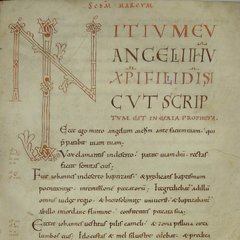 SCDM MARCUM
INITIU EU
ANGELII IHU
XPI FILII DI SI
CUT SCRIP
TUM EST IN ESAIA PROPHETA.
Ecce ego mitto angelum meum ante faciem tuam. qui
preparabit uiam tuam
Vox clamantis in deserto. parate uiam dni. rectas
facite semitas eius.
Fuit iohannes in deserto baptizans. & predicans baptismum
in remissionem peccatorum. Et egrediebatur ad illum
omnis iudeae regio. & hierosolimite uniuersi. & baptizabantur
ab illo in iordane flumine. confitentes peccata sua.
Et erat iohannes uestitus pilis cameli. & zona pellicia circa
lumbos eius. Et locustas & mel siluestre edebat. & predica